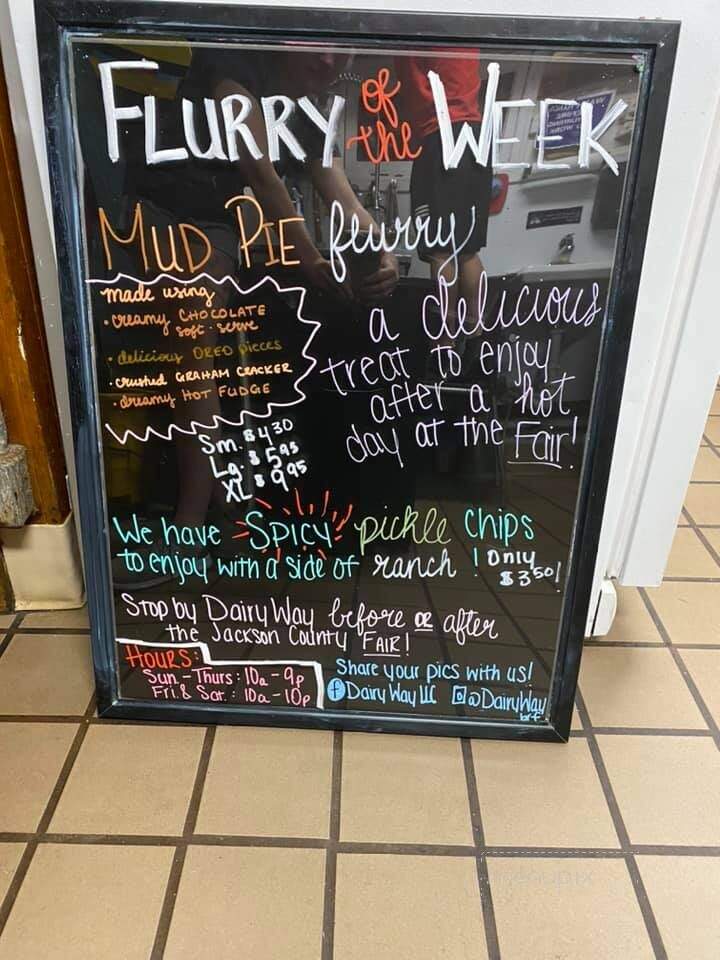 FLURRY of the WEEK
MUD PIE flurry
made using
• creamy CHOCOLATE
soft-serve
• delicious OREO pieces
• crushed GRAHAM CRACKER
• dreamy HOT FUDGE
a delicious
treat to enjoy
after a hot
day at the Fair!
Sm. $4.30
Lg. $5.95
XL $9.95
We have SPICY! pickle chips
to enjoy with a side of ranch! Only
$3.50!
Stop by Dairy Way before OR after
the Jackson County FAIR!
HOURS:
Sun.-Thurs: 10a-9p
Fri. & Sat.: 10a-10p
Share your pics with us!
f Dairy Way LLC @DairyWay
brf